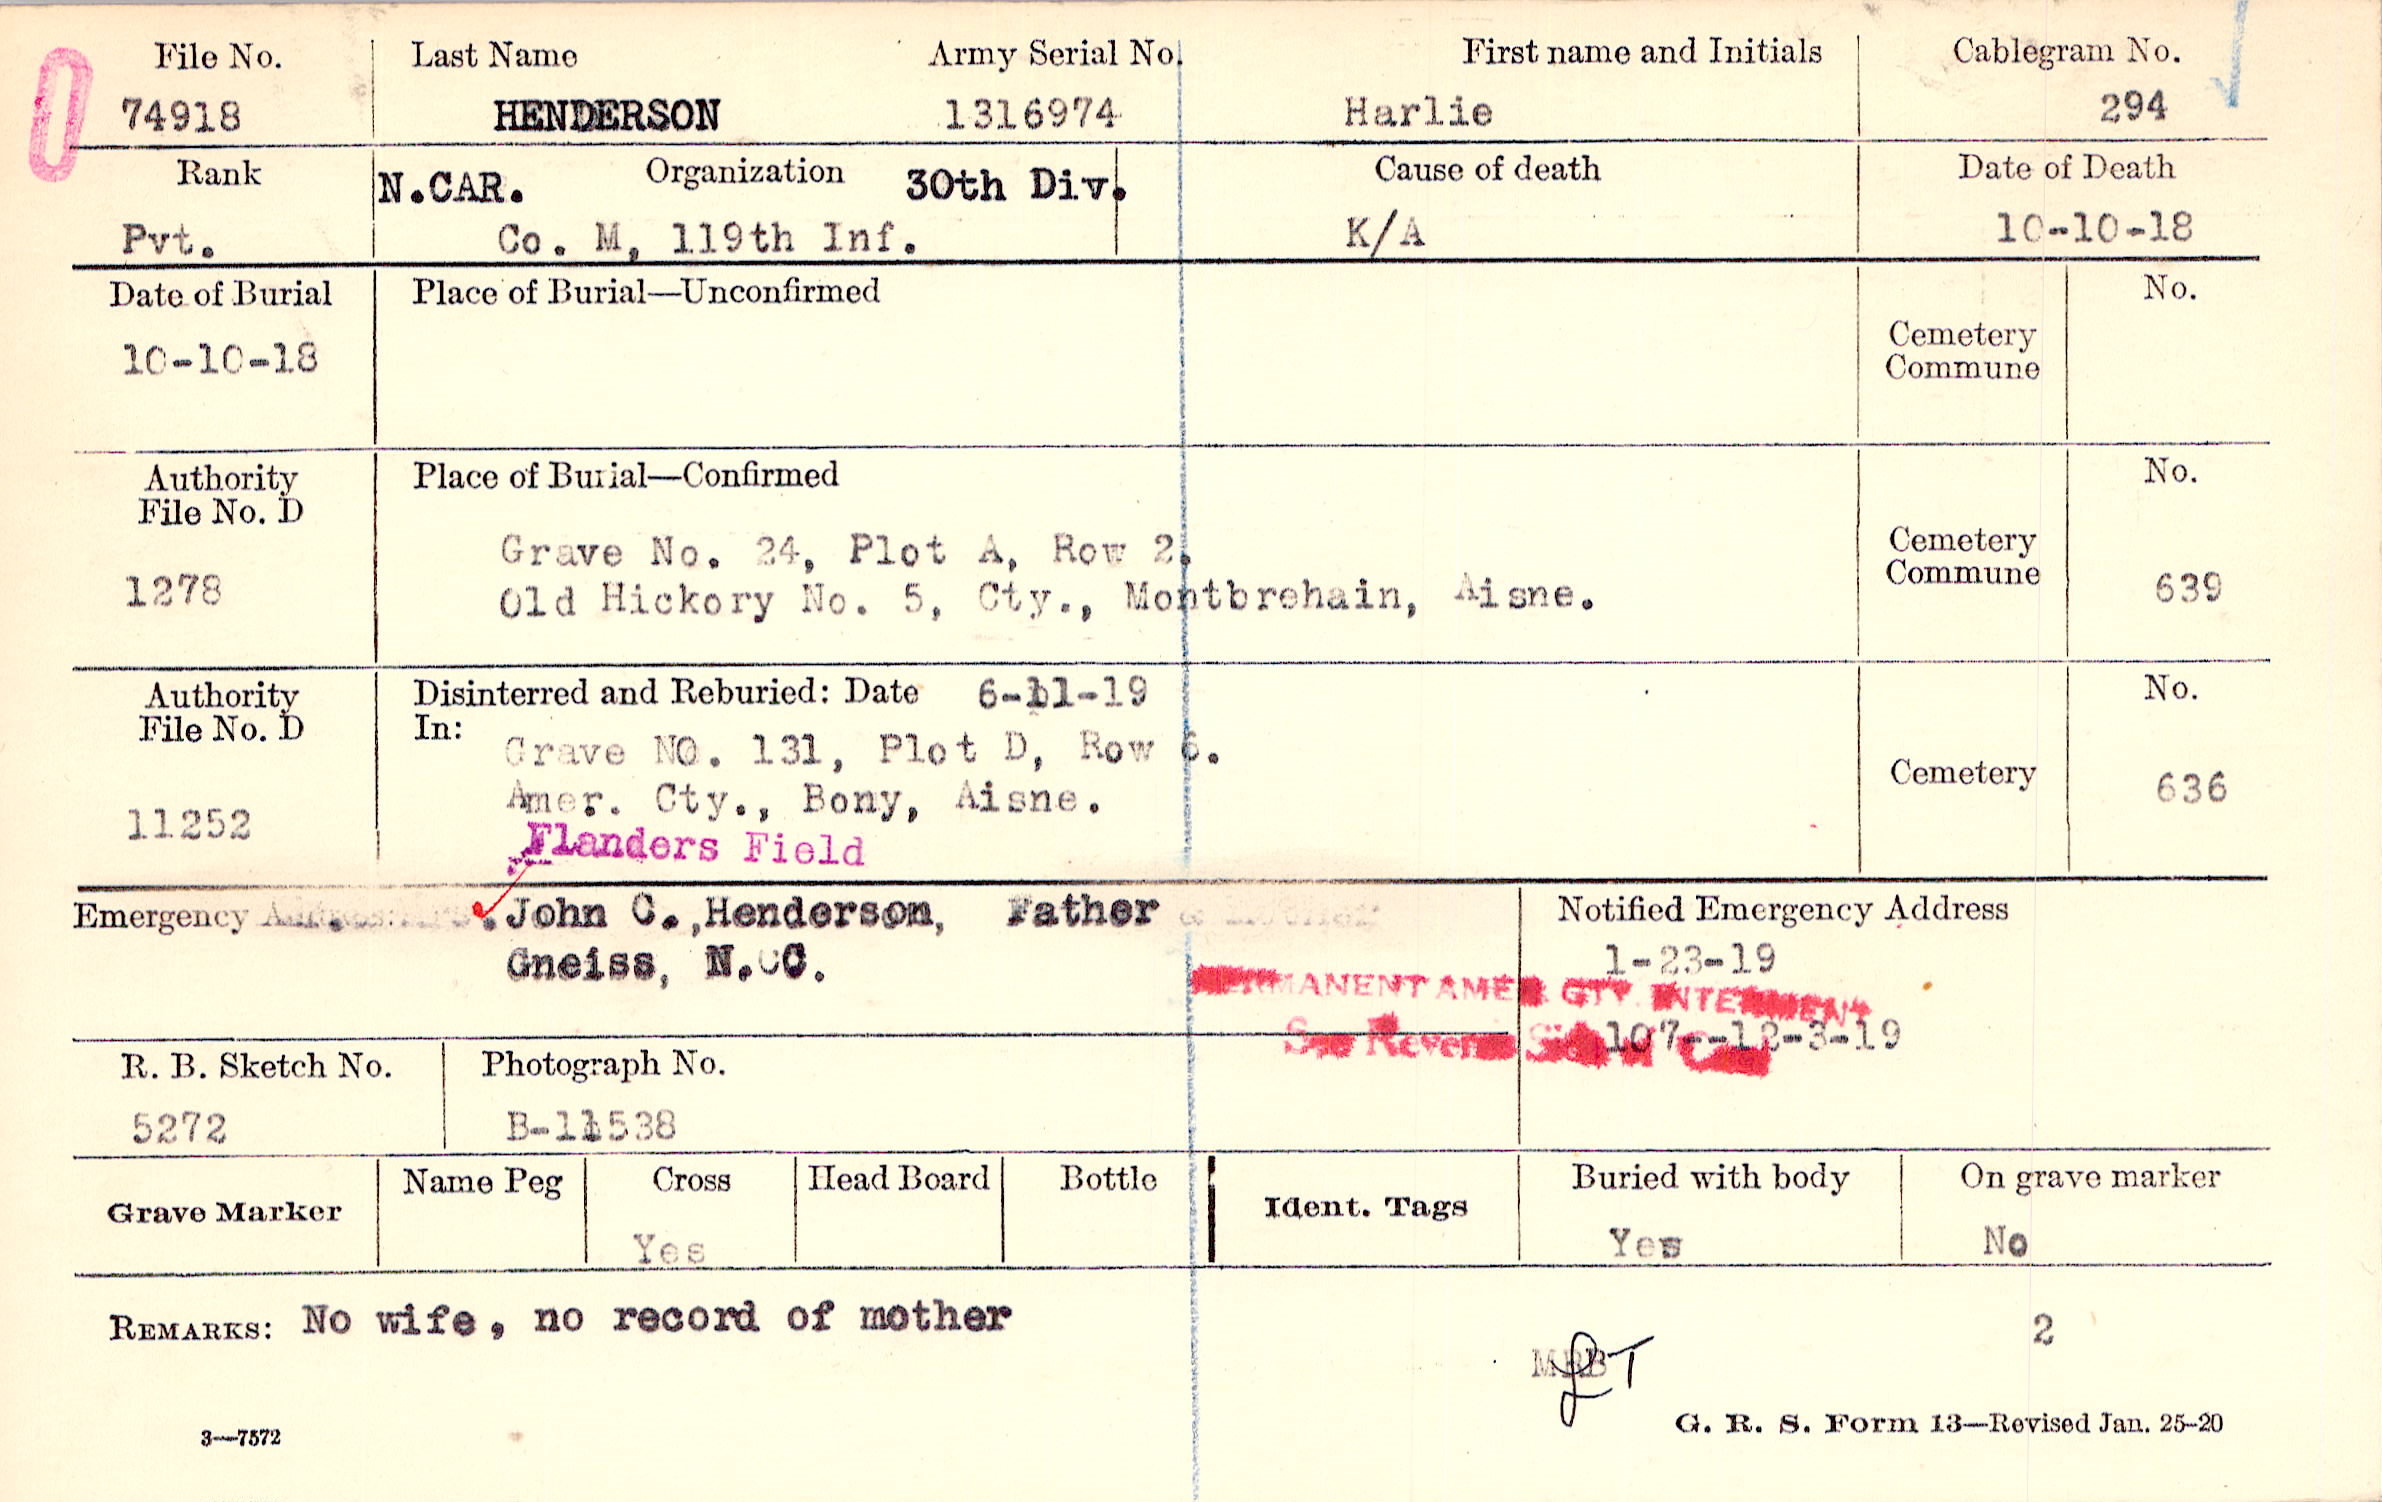 File No. Last Name Army Serial No. First name and Initials Cablegram No.
74918 HENDERSON 1316974 Harlie 294
Rank N.CAR. Organization 30th Div. Cause of death Date of Death
Pvt. Co. M, 119th Inf. K/A 10-10-18
Date of Burial Place of Burial—Unconfirmed No.
10-10-18 Cemetery
Commune
Authority Place of Burial—Confirmed No.
File No. D
Grave No. 24, Plot A, Row 2. Cemetery
1278 Old Hickory No. 5, Cty., Montbrehain, Aisne. Commune 639
Authority Disinterred and Reburied: Date 6-11-19 No.
File No. D In:
Grave NO. 131, Plot D, Row 6.
Amer. Cty., Bony, Aisne. Cemetery 636
11252 Flanders Field
Emergency John C., Henderson, Father Notified Emergency Address
Gneiss, N. C. 1-23-19
PERMANENT AMER. CTY. INTERMENT
See Reverse Side of Card 107--12-3-19
R. B. Sketch No. Photograph No.
5272 B-11538
Grave Marker Name Peg Cross Head Board Bottle Ident. Tags Buried with body On grave marker
Yes Yes No
REMARKS: No wife, no record of mother 2
3—7572 G. R. S. Form 13—Revised Jan. 25-20